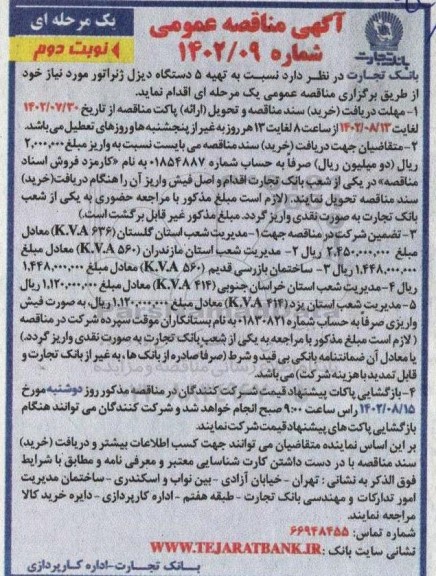 آگهی مناقصه عمومی
شماره ۱۴۰۲/۰۹
یک مرحله ای
نوبت دوم
بانک تجارت
بانک تجارت در نظر دارد نسبت به تهیه ۵ دستگاه دیزل ژنراتور مورد نیاز خود
از طریق برگزاری مناقصه عمومی یک مرحله ای اقدام نماید.
۱- مهلت دریافت (خرید) سند مناقصه و تحویل (ارائه) پاکت مناقصه از تاریخ ۱۴۰۲/۰۷/۳۰
لغایت ۱۴۰۲/۰۸/۱۳ از ساعت ۸ لغایت ۱۳ هر روز به غیر از پنجشنبه ها و روزهای تعطیل می باشد.
۲- متقاضیان جهت دریافت (خرید) سند مناقصه می بایست نسبت به واریز مبلغ ۲,۰۰۰,۰۰۰
ریال (دو میلیون ریال) صرفا به حساب شماره ۰۱۸۵۴۸۸۷ به نام «کارمزد فروش اسناد
مناقصه» در یکی از شعب بانک تجارت اقدام و اصل فیش واریز آن را هنگام دریافت (خرید)
سند مناقصه تحویل نمایند. (لازم است مبلغ مذکور با مراجعه حضوری به یکی از شعب
بانک تجارت به صورت نقدی واریز گردد. مبلغ مذکور غیر قابل برگشت است.)
۳- تضمین شرکت در مناقصه جهت ۱- مدیریت شعب استان گلستان (۶۳۶ K.V.A) معادل
مبلغ ۲,۴۵۰,۰۰۰,۰۰۰ ریال ۲- مدیریت شعب استان مازندران (۵۶۰ K.V.A) معادل مبلغ
۱,۴۴۸,۰۰۰,۰۰۰ ریال ۳- ساختمان بازرسی قدیم (۵۶۰ K.V.A) معادل مبلغ ۱,۴۴۸,۰۰۰,۰۰۰
ریال ۴- مدیریت شعب استان خراسان جنوبی (۴۱۴ K.V.A) معادل مبلغ ۱,۱۲۰,۰۰۰,۰۰۰ ریال
۵- مدیریت شعب استان یزد (۴۱۴ K.V.A) معادل مبلغ ۱,۱۲۰,۰۰۰,۰۰۰ ریال، به صورت فیش
واریزی صرفا به حساب شماره ۰۱۸۳۰۸۲۱ به نام بستانکاران موقت سپرده شرکت در مناقصه
(لازم است مبلغ مذکور با مراجعه به یکی از شعب بانک تجارت به صورت نقدی واریز گردد.)
یا معادل آن ضمانتنامه بانکی بی قید و شرط (صرفا صادره از بانک ها، به غیر از بانک تجارت و
قابل تمدید با هزینه شرکت) می باشد.
۴- بازگشایی پاکات پیشنهاد قیمت شرکت کنندگان در مناقصه مذکور روز دوشنبه مورخ
۱۴۰۲/۰۸/۱۵ راس ساعت ۹:۰۰ صبح انجام خواهد شد و شرکت کنندگان می توانند هنگام
بازگشایی پاکت های پیشنهاد قیمت شرکت نمایند.
بر این اساس نماینده متقاضیان می توانند جهت کسب اطلاعات بیشتر و دریافت (خرید)
سند مناقصه با در دست داشتن کارت شناسایی معتبر و معرفی نامه و مطابق با شرایط
فوق الذکر به نشانی : تهران - خیابان آزادی - بین نواب و اسکندری - ساختمان مدیریت
امور تدارکات و مهندسی بانک تجارت - طبقه هفتم - اداره کارپردازی - دایره خرید کالا
مراجعه نمایند.
شماره تماس: ۶۶۹۴۸۴۵۵
نشانی سایت بانک : WWW.TEJARATBANK.IR
بانک تجارت-اداره کارپردازی